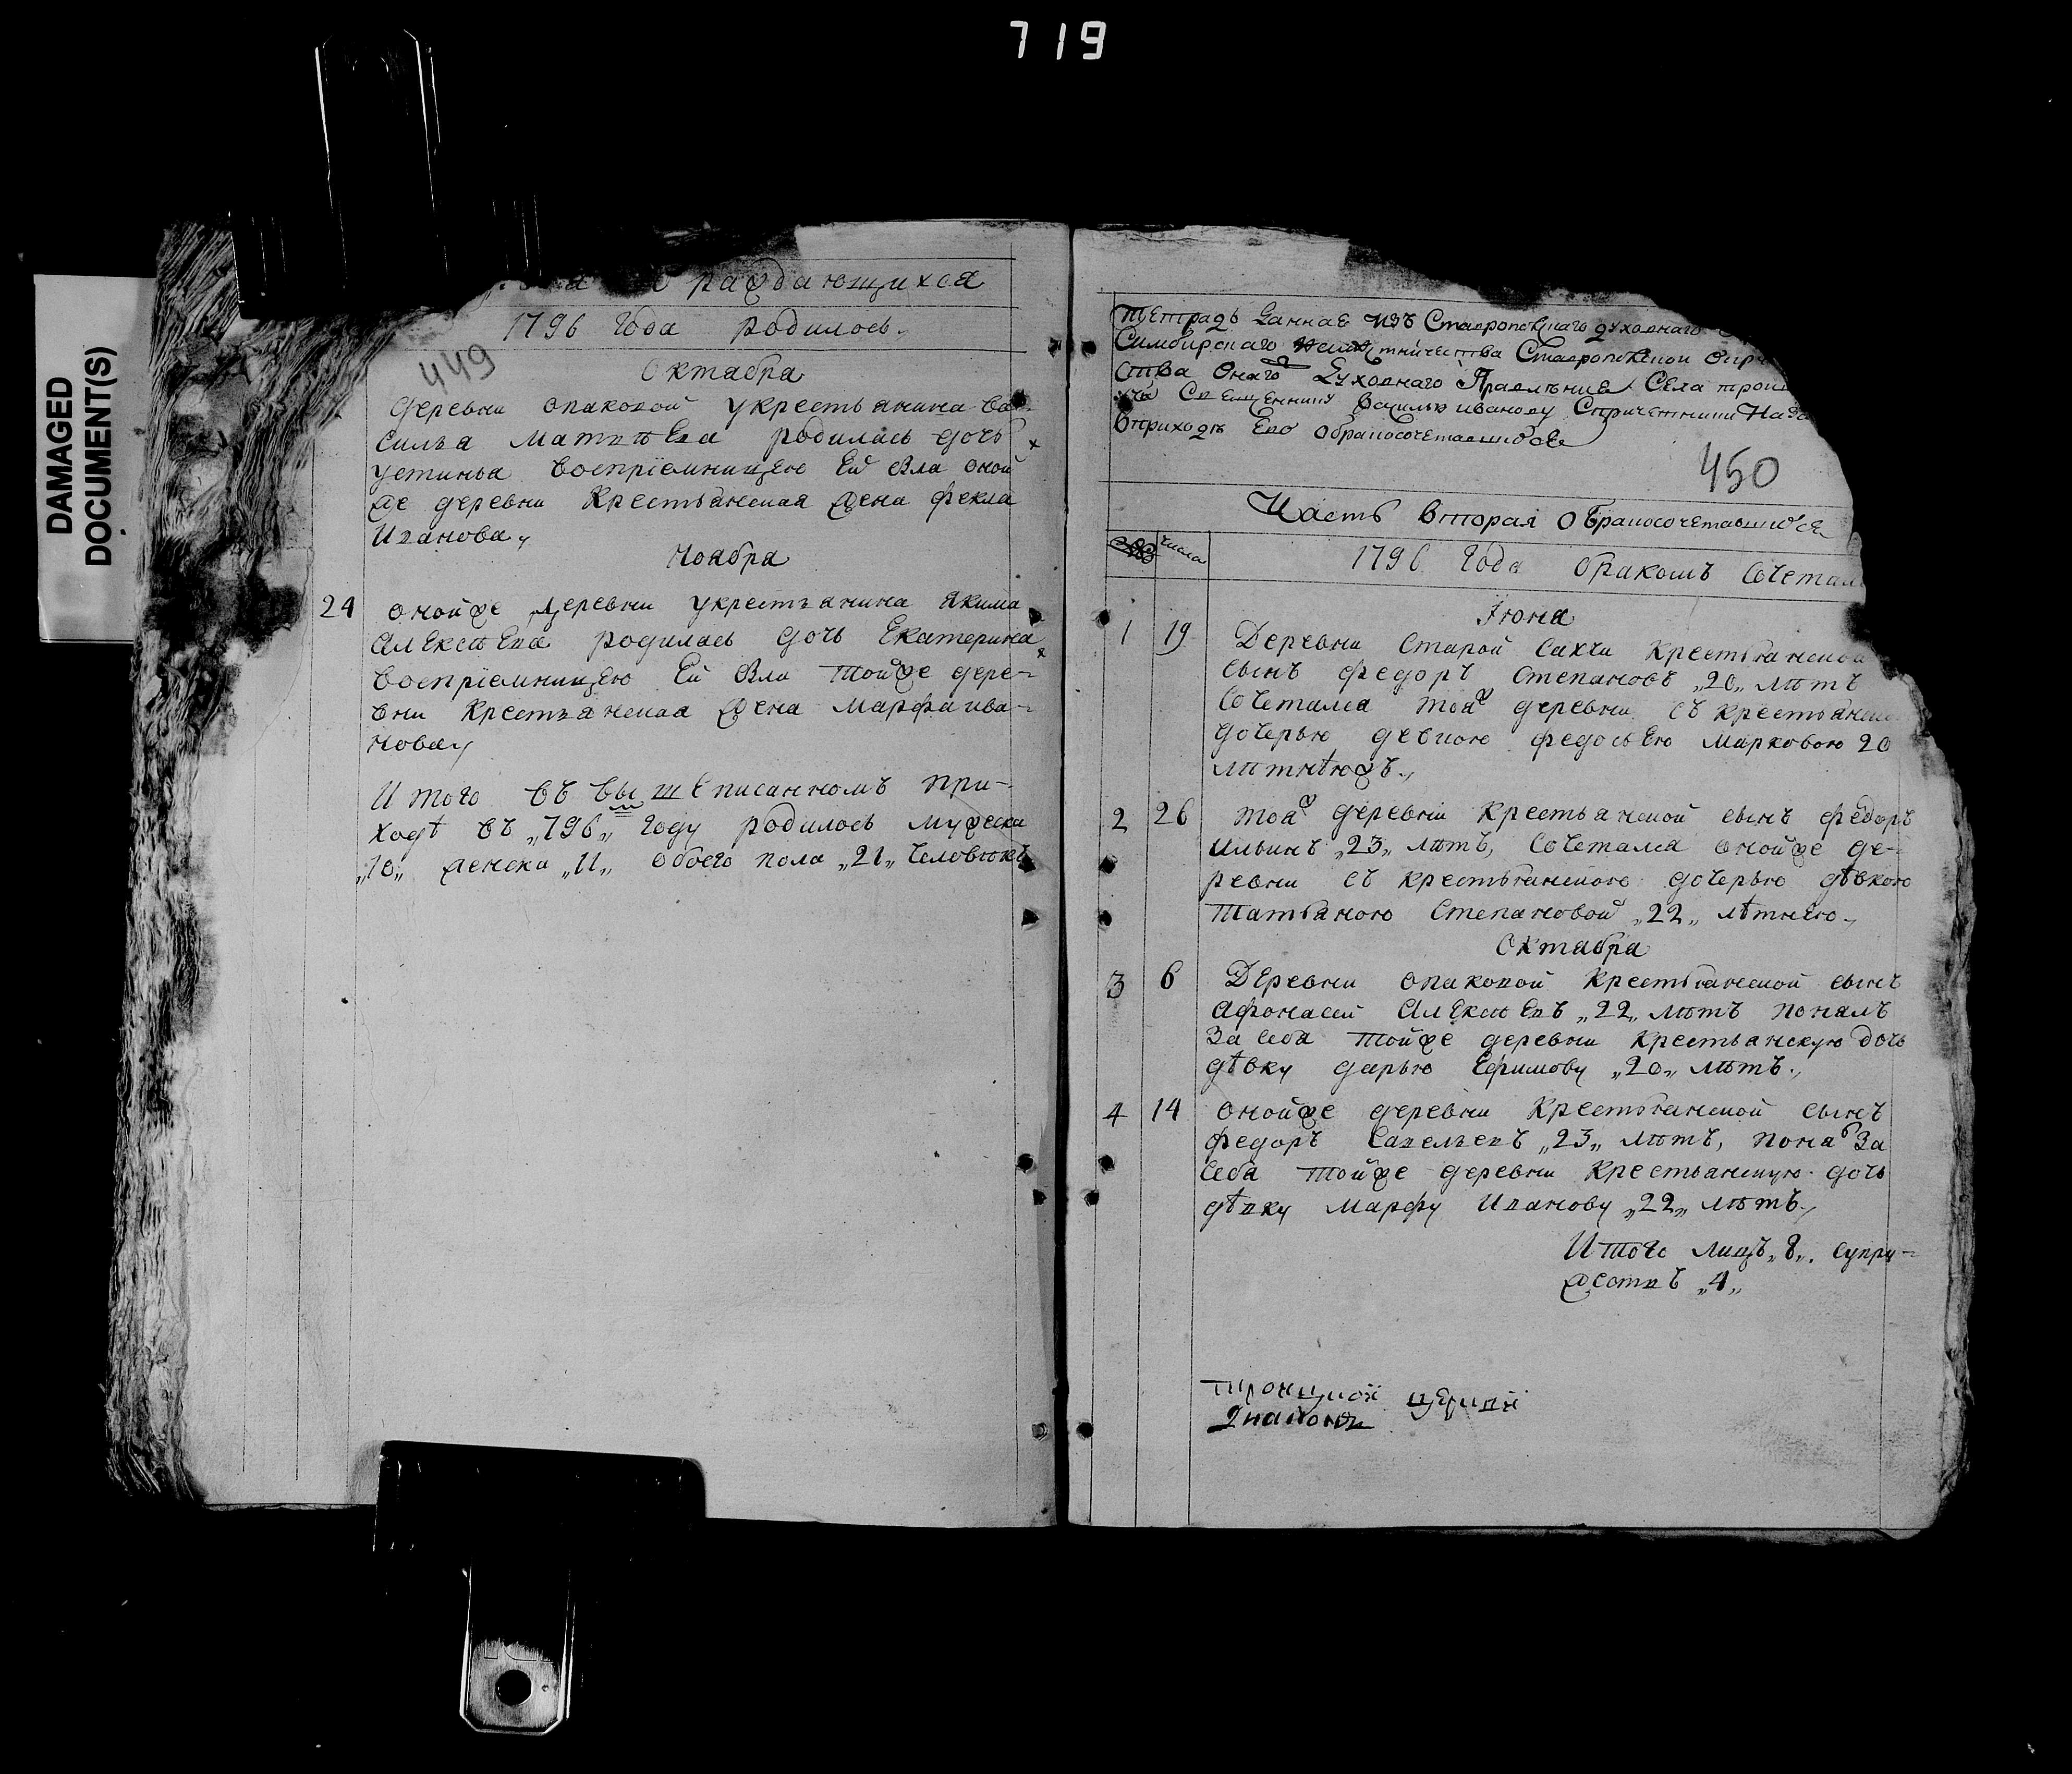 719
DAMAGED
DOCUMENT(S)
раждающихся
1796 года родилось
449
Октабра
деревни опаковой укрестьянина Ва-
силья Матвѣева родилась дочь
устинья восприемницею Ей была оной
же деревни крестьянская жена фекла
Иванова
Ноябра
24 оной же деревни укрестьянина якима
Алексѣева родилась дочь Екатерина
восприемницею Ей была той же дере-
вни крестьянская жена Марфа ива-
нова
Итого въ вышеписанномъ при-
ходѣ въ „796„ году родилось мужеска
„10„ женска „11„ обоего пола „21„ человѣкъ
Тетрадь данная изъ Ставропольскаго духовнаго
Симбирскаго Ставропольской
ства онаго духовнаго Правления Села
Священнику василью иванову Спричетники
вприходѣ Его обракосочетавшихся
450
Часть вторая обракосочетавшихся
числа
1796 года бракомъ Сочетал
Июня
1 19 Деревни Старой Сахчи крестьянской
сынъ федоръ степановъ „20„ лѣтъ
Сочетался тояж деревни съ крестьянс
дочерью девкою федосьею Марковою 20
лѣтнеюжъ
2 26 тояж деревни крестьянской сынъ федоръ
ильинъ „23„ лѣтъ, Сочетался оной же де-
ревни съ крестьянскою дочерью дѣвкою
Татьяною Степановой „22„ лѣтнею
Октабра
3 6 Деревни опаковой крестьянской сынъ
Афонасей Алексѣевъ „22„ лѣтъ понялъ
за себя той же деревни крестьянскую дочь
дѣвку дарью Ефимову „20„ лѣтъ
4 14 оной же деревни крестьянской сынъ
федоръ Савельевъ „23„ лѣтъ, поня за
себя той же деревни крестьянскую дочь
дѣвку Марфу Иванову „22„ лѣтъ
Итого лицъ „8„ супру-
жествъ „4„
троицкой церкви